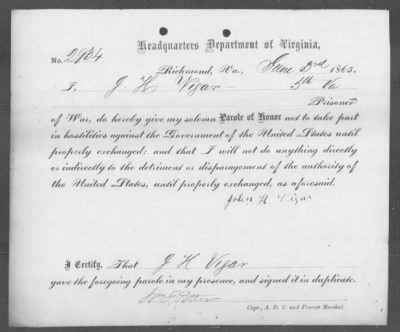 Headquarters Department of Virginia,
No. 2964
Richmond, Va., June 3rd 1865.
I, J H Vigar 5th Va
Prisoner
of War, do hereby give my solemn Parole of Honor not to take part
in hostilities against the Government of the United States until
properly exchanged; and that I will not do anything directly
or indirectly to the detriment or disparagement of the authority of
the United States, until properly exchanged, as aforesaid.
John H Vigar
I Certify, That J H Vigar
gave the foregoing parole in my presence, and signed it in duplicate.
Capt., A. D. C. and Provost Marshal.